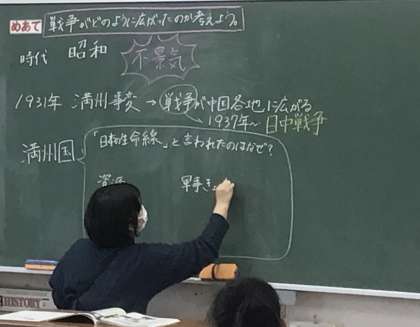 めあて 戦争がどのように広がったのか考えよう。
時代 昭和 不景気
1931年 満州事変→戦争が中国各地に広がる
1937年~日中戦争
満州国 「日本の生命線」と言われたのはなぜ?
資源 軍事
HISTORY